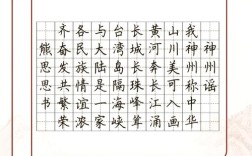 神州谣
我神州称中华
山川美可入画
黄河奔长江涌
长城长珠峰耸
台湾岛隔海峡
与大陆是一家
各民族情谊浓
齐奋发共繁荣
熊思思书